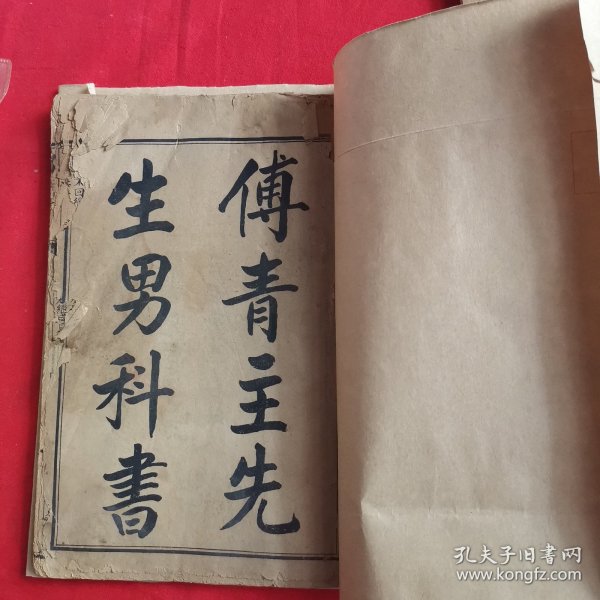 傅青主先
生男科書
孔夫子旧書网
www.kongfz.com